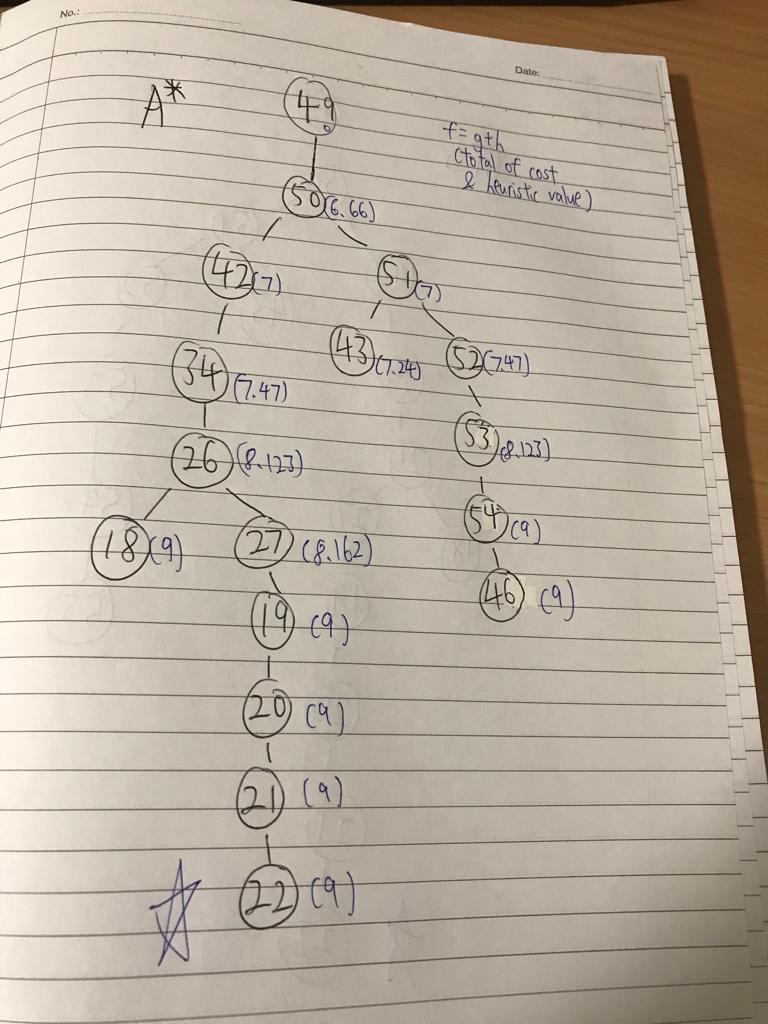 No.:
Date:
A*
49
f=g+h
(total of cost
& heuristic value)
50 (6.66)
42 (7)
51 (7)
34 (7.47)
43 (7.24)
52 (7.47)
26 (8.123)
53 (8.123)
18 (9)
27 (8.162)
54 (9)
19 (9)
46 (9)
20 (9)
21 (9)
22 (9)